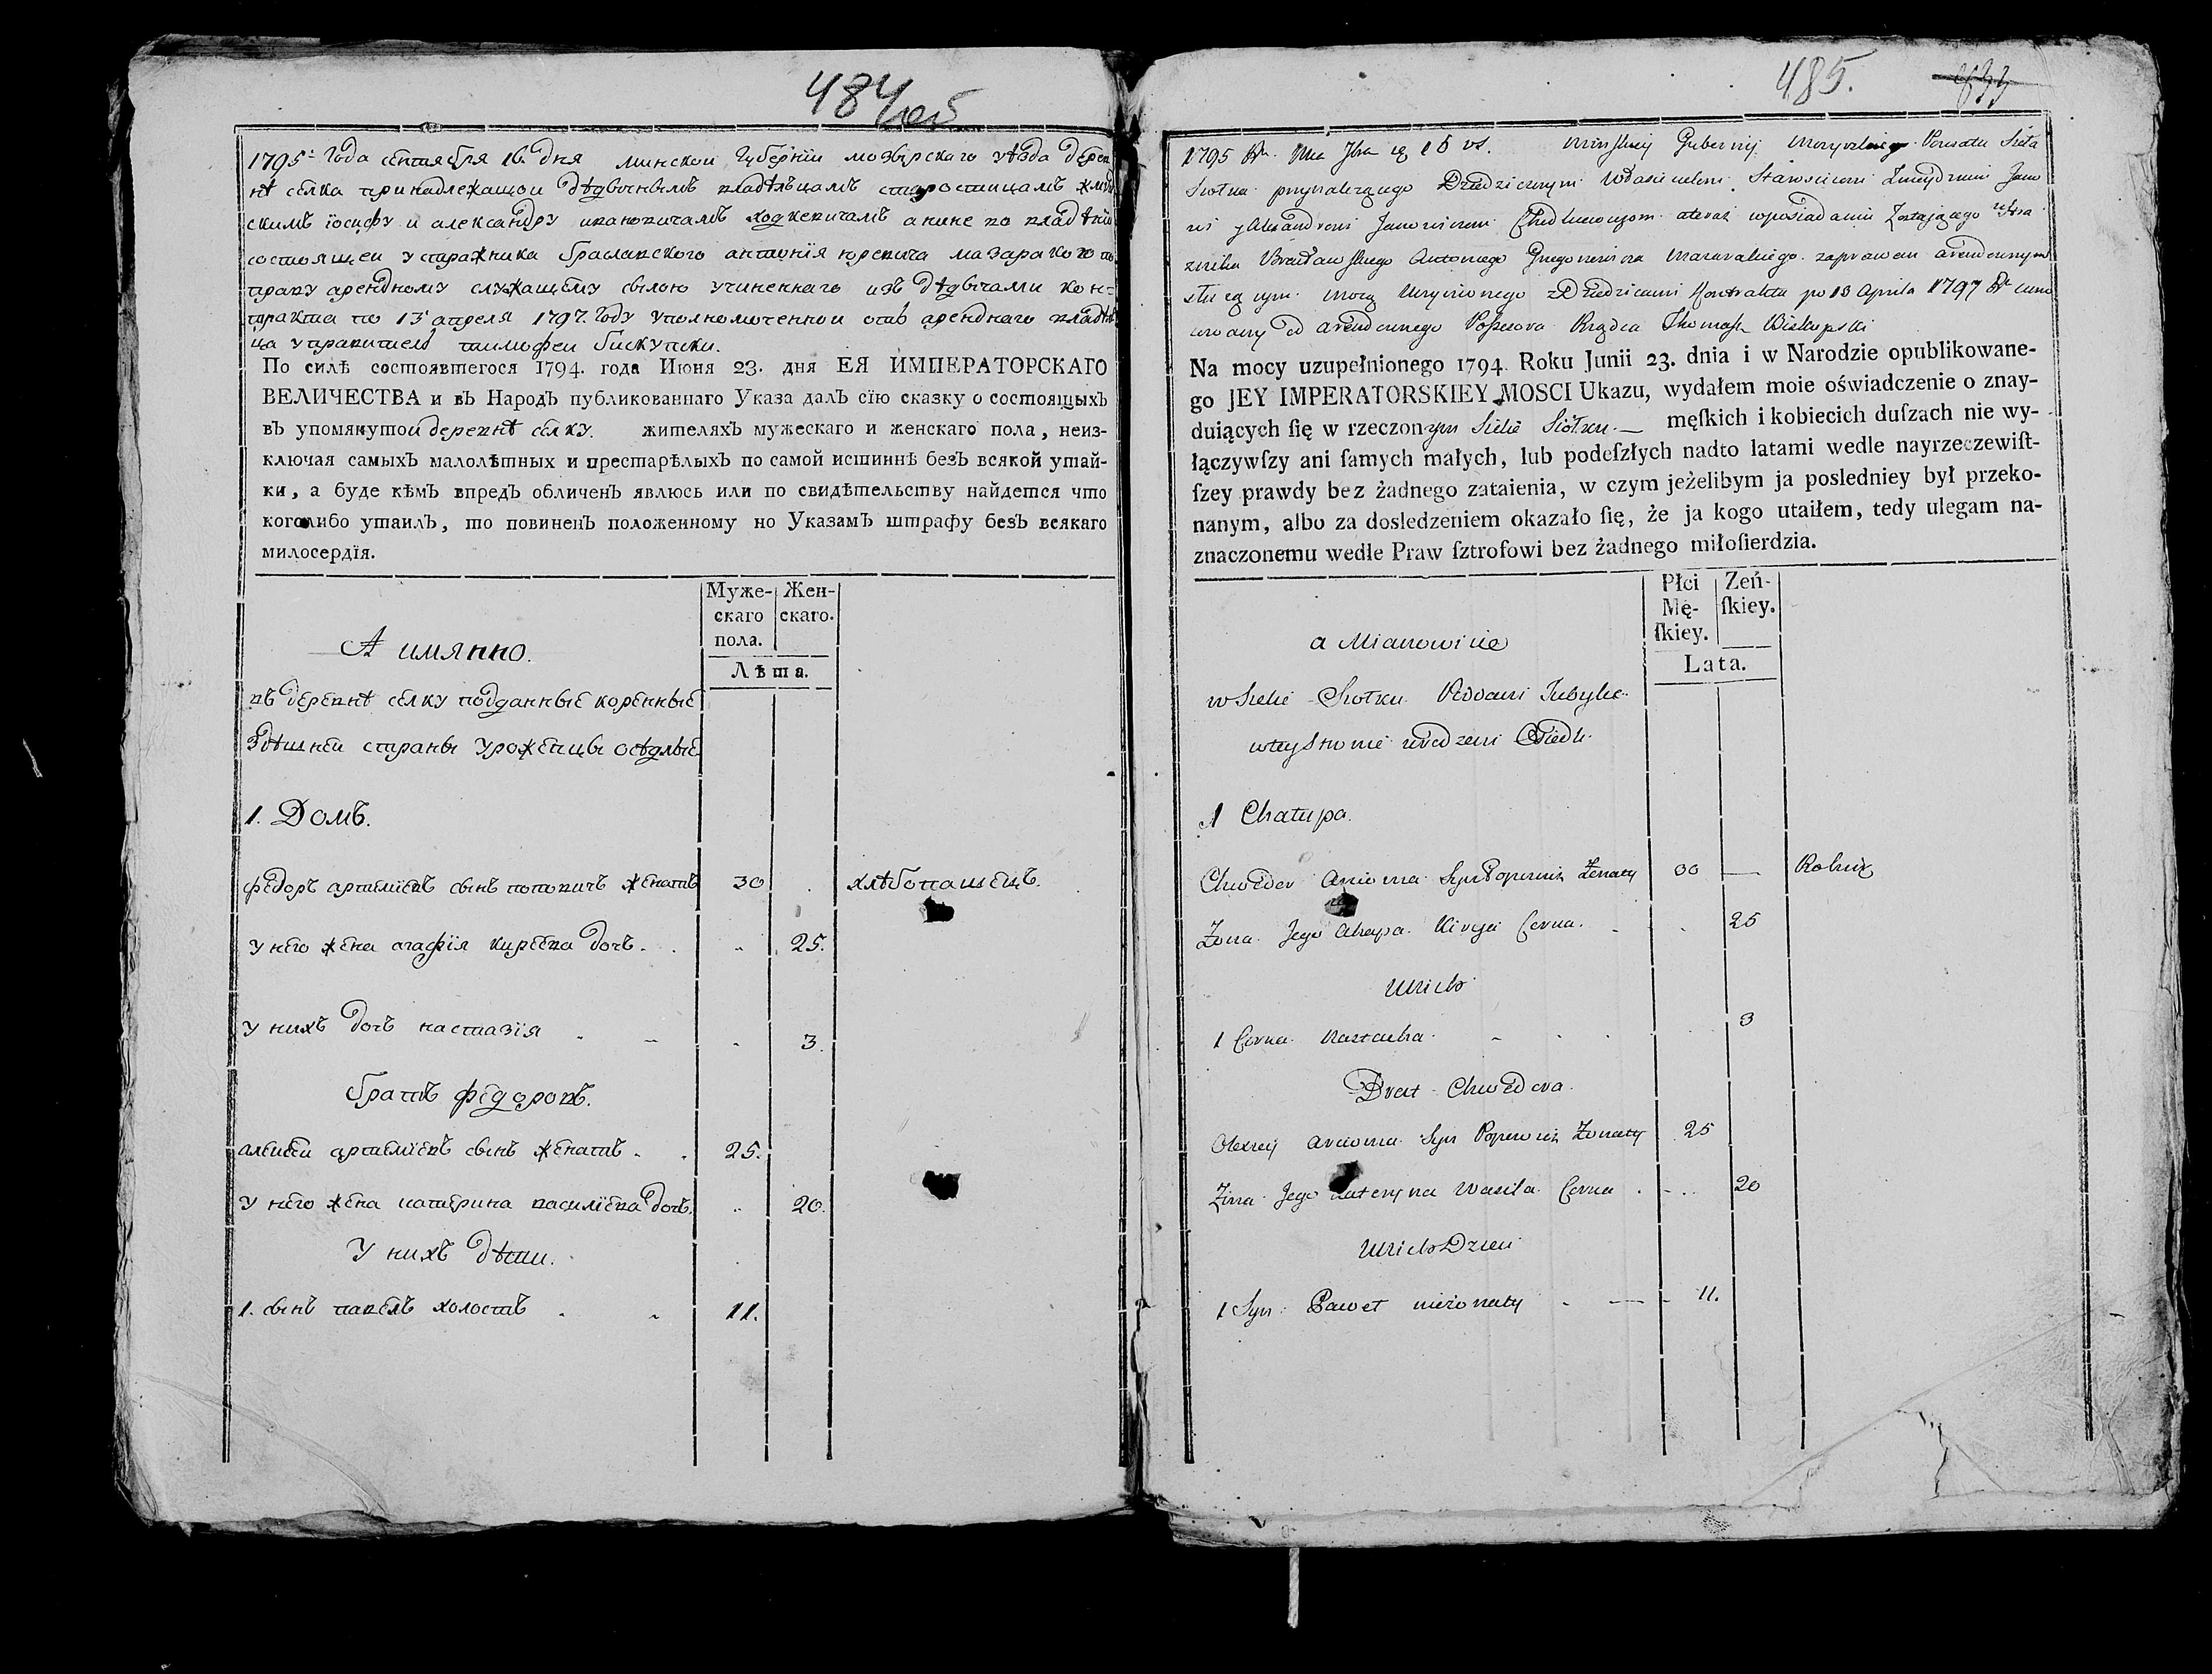 484 об
1795: Года сентября 16. дня минской Губернїи мозырского уезда дерев
нѣ сёлка принадлежащои дѣдычнымъ владѣльцамъ старостицамъ жмуд
скимъ іосифу и александру ивановичамъ ходкевичамъ а нине во владѣнїи
состоящеи у стражника браславского антонїя юревича мазараког по
праву арендному служащему силою учиненнаго изъ дѣдычами кон-
тракта по 13 апреля 1797. Году уполномоченнои отъ арендного владѣл
ца управитель тимофеи бискупски.
По силѣ состоявшегося 1794. года Июня 23. дня ЕЯ ИМПЕРАТОРСКАГО
ВЕЛИЧЕСТВА и въ Народъ публикованнаго Указа далъ сїю сказку о состоящыхъ
въ упомянутой деревнѣ сёлку. жителяхъ мужескаго и женскаго пола, неиз-
ключая самыхъ малолѣтныхъ и престарѣлыхъ по самой истиннѣ безъ всякой утай-
ки, а буде кѣмъ впредъ обличенъ явлюсь или по свидѣтельству найдется что
коголибо утаилъ, то повиненъ положенному по Указамъ штрафу безъ всякаго
милосердїя.
Муже-
скаго
пола.
Жен-
скаго.
Лѣта.
А имянно.
въ деревнѣ сёлку подданные коренные
здѣшней страны уроженцы осѣдлые
1. Домъ.
федоръ артемїевъ сынъ поповичъ женатъ 30 . хлѣбопашецъ.
у него жена агафїя кирѣева дочь. . „ 25.
у нихъ дочь настазїя 3.
братъ федоровъ.
алексей артемїевъ сынъ женатъ . . 25.
у него жена катерина василїева дочь. „ 20.
У нихъ дѣти.
1. сынъ павелъ холостъ . . 11.
485. 433
1795 Rku Mca 7bra 16 vs. Minskiey Gubernij Mozyrskiego Powiatu Sieła
Siołka przynależącego Dziedzicznym Własicielom Starościcom Zmuydzkim Jozef
owi y Alexandrowi Janowiczom Chodkiewiczom a teraz w posiadaniu Zostaiącego u Stra
znika Bracławskiego Antoniego Mazarakiego za prawem arendownym
służącym mocą Uczynionego z Dziedzicami Kontraktu po 13 Aprila 1797 Rku umo
cowany od arendownego Possesora Rządca Thomasz Biskupski
Na mocy uzupełnionego 1794. Roku Junii 23. dnia i w Narodzie opublikowane-
go JEY IMPERATORSKIEY MOSCI Ukazu, wydałem moie oświadczenie o znay-
duiących ſię w rzeczonym Siele Siołku. — męſkich i kobiecich duſzach nie wy-
łączywſzy ani ſamych małych, lub podeſzłych nadto latami wedle nayrzeczewiſt-
ſzey prawdy bez żadnego zataienia, w czym jeżelibym ja posledniey był przeko-
nanym, albo za dosledzeniem okazało ſię, że ja kogo utaiłem, tedy ulegam na-
znaczonemu wedle Praw ſztrofowi bez żadnego miłoſierdzia.
Płci
Mę-
ſkiey.
Zeń-
ſkiey.
Lata.
a Mianowicie
w Siele Siołku Poddani
w tey stronie urodzeni Osiedli.
1 Chałupa.
Chwedor Arcioma Syn Popowicz Żonaty 30 — Rolnik
Żona Jego Ahapa Kireja Corka. . . 25
U nich
1 Corka Nastazka . . . . 3
Brat Chwedora.
Olexiey Arcioma Syn Popowicz Żonaty 25
Żona Jego Kateryna Wasila Corka . . 20
U nich Dzieci
1 Syn Paweł nieżonaty . — 11.